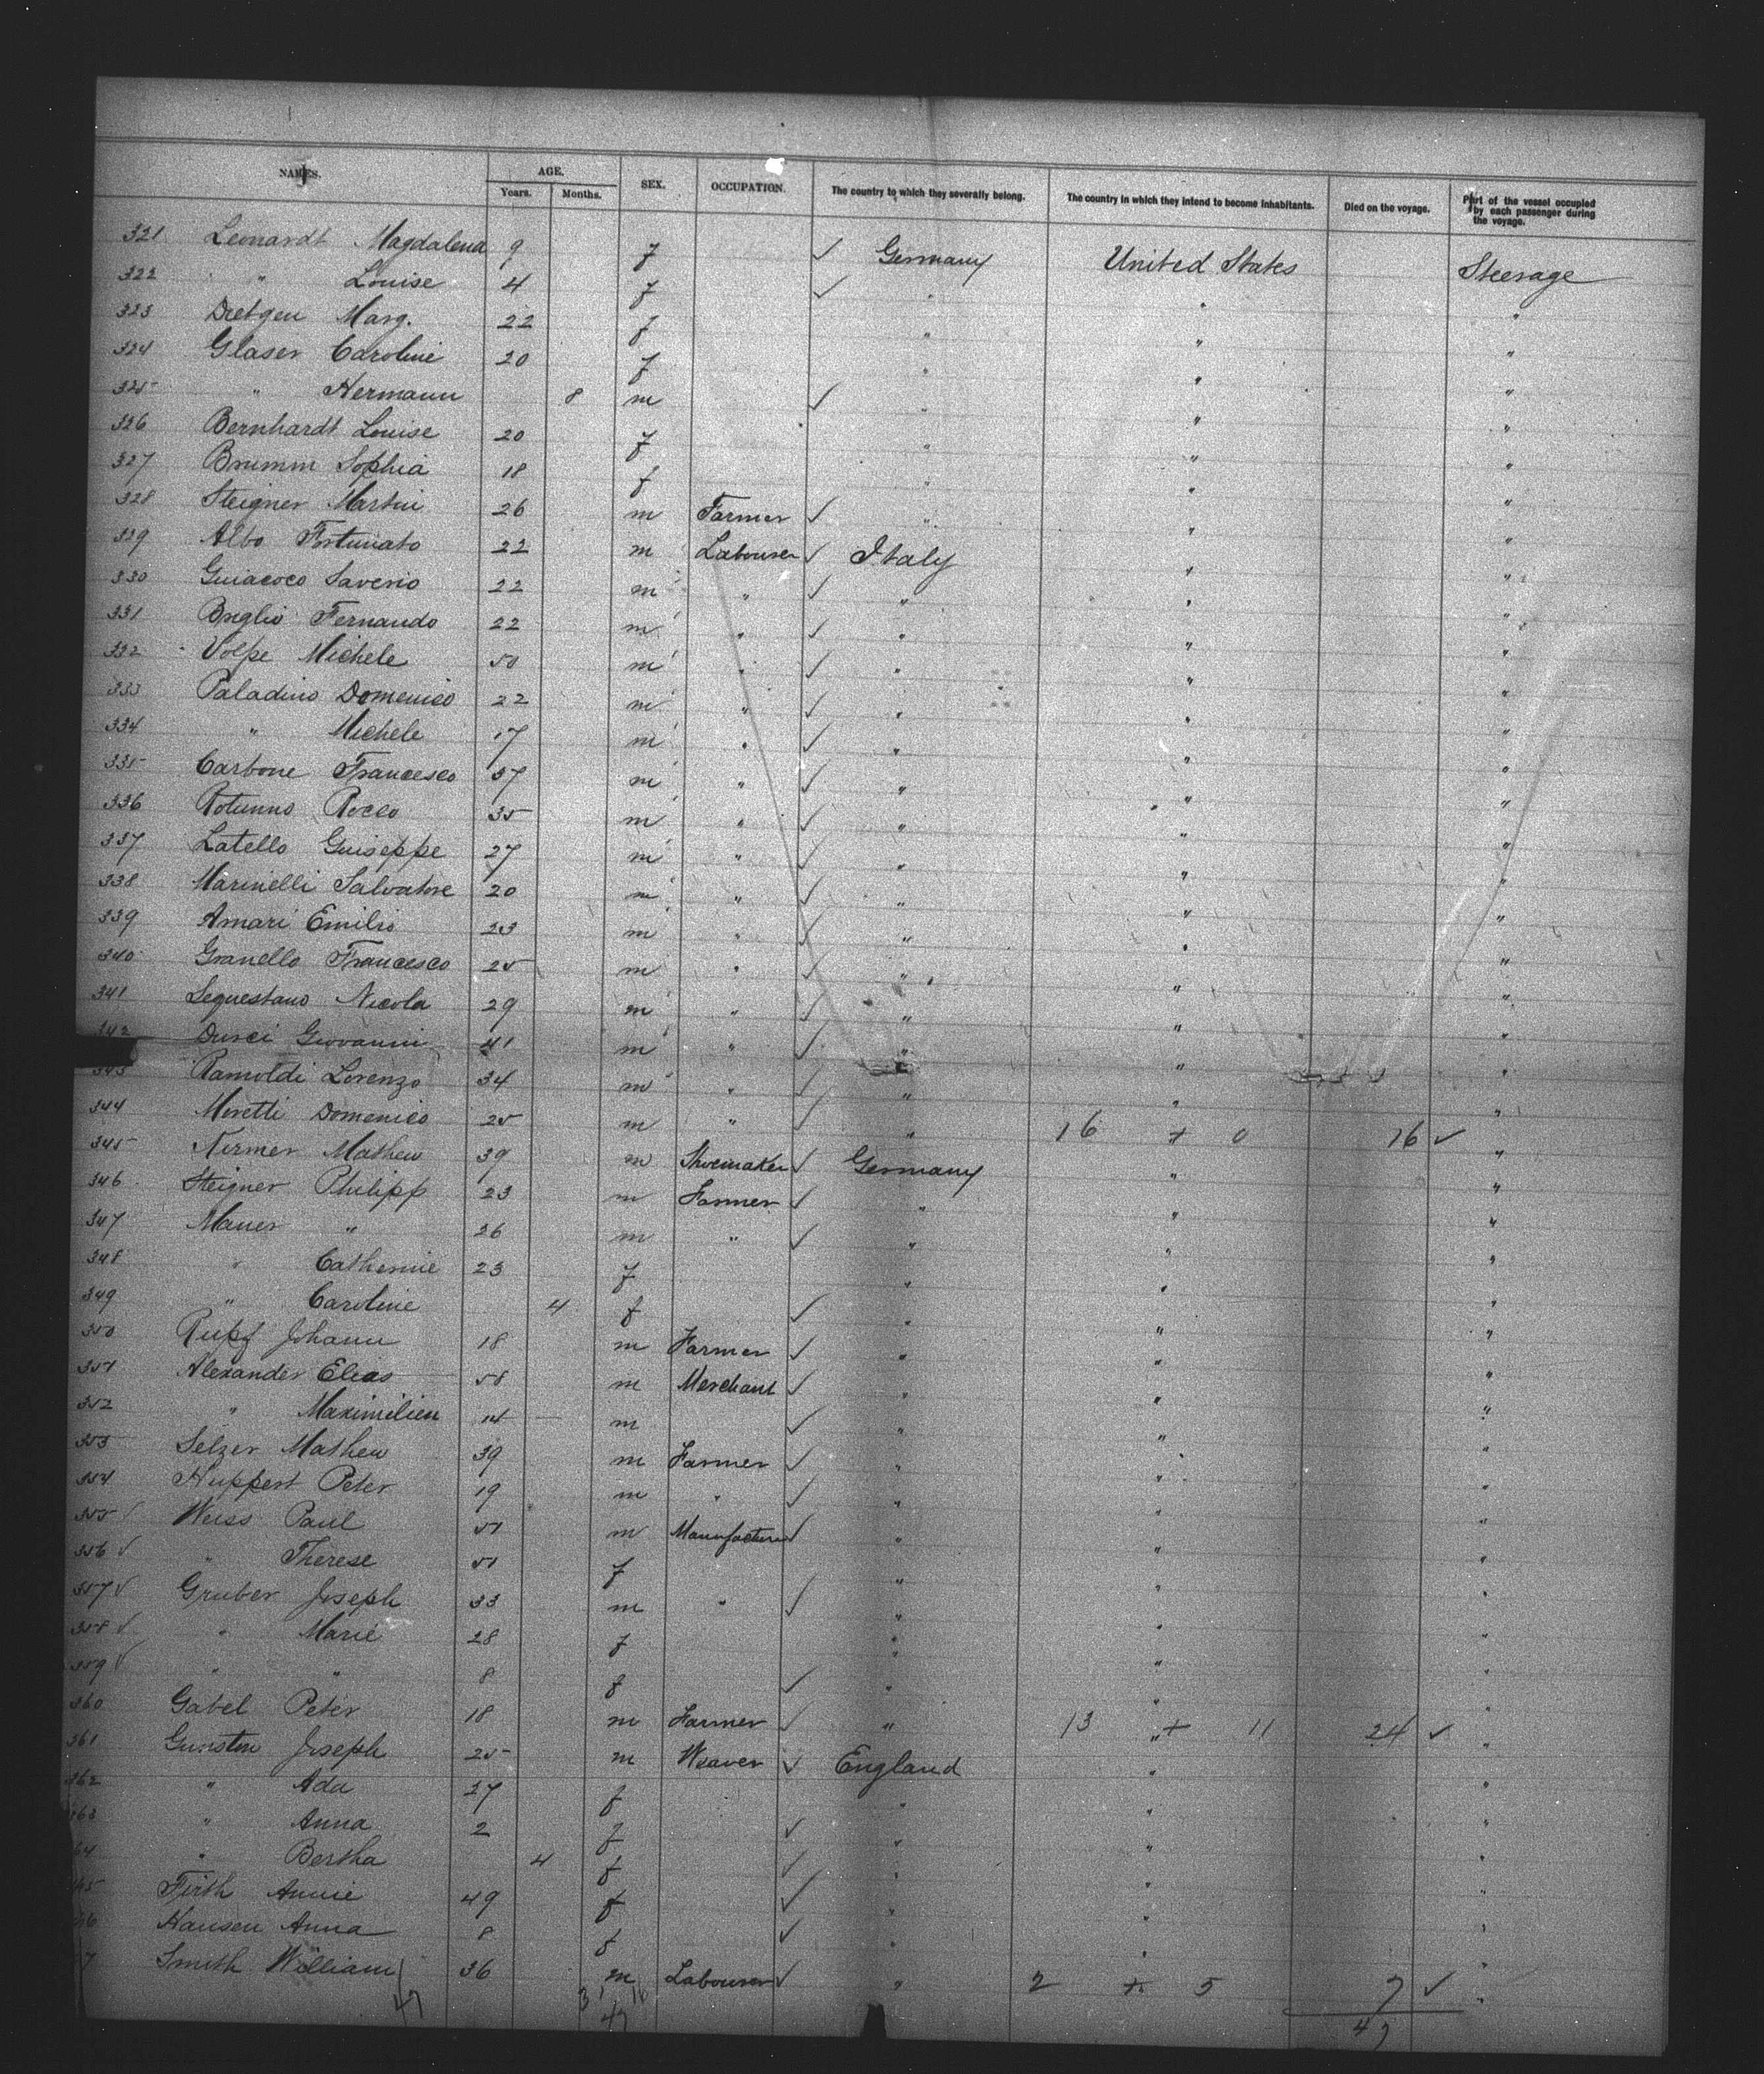 NAMES. AGE. SEX. OCCUPATION. The country to which they severally belong. The country in which they intend to become inhabitants. Died on the voyage. Part of the vessel occupied by each passenger during the voyage.
Years. Months.
321 Leonardt Magdalena 9 f ✓ Germany United States Steerage
322 " Louise 4 f ✓ " " "
323 Dretgen Marg. 22 f " " "
324 Glaser Caroline 20 f " " "
325 " Hermann 8 m ✓ " " "
326 Bernhardt Louise 20 f " " "
327 Brumm Sophia 18 f " " "
328 Steigner Martin 26 m Farmer ✓ " " "
329 Albo Fortunato 22 m Labourer ✓ Italy " "
330 Guiacoco Saverio 22 m " ✓ " " "
331 Briglio Fernando 22 m " ✓ " " "
332 Volpe Michele 50 m " ✓ " " "
333 Paladino Domenico 22 m " ✓ " " "
334 " Michele 17 m " ✓ " " "
335 Carbone Francesco 37 m " ✓ " " "
336 Rotunno Rocco 35 m " ✓ " " "
337 Latello Guiseppe 27 m " ✓ " " "
338 Marinelli Salvatore 20 m " ✓ " " "
339 Amari Emilio 23 m " ✓ " " "
340 Granello Francesco 25 m " ✓ " " "
341 Sequestano Nicola 29 m " ✓ " " "
342 Durci Giovanni 41 m " ✓ " " "
343 Ramoldi Lorenzo 34 m " ✓ " " "
344 Moretti Domenico 25 m " ✓ " 16 + 0 16 ✓ "
345 Nermer Mathew 39 m Shoemaker ✓ Germany " "
346 Steigner Philipp 23 m Farmer ✓ " " "
347 Mauer " 26 m " ✓ " " "
348 " Catherine 23 f " " "
349 " Caroline 4 f ✓ " " "
350 Rupf Johann 18 m Farmer ✓ " " "
351 Alexander Elias 58 m Merchant ✓ " " "
352 " Maximilien 14 m ✓ " " "
353 Selzer Mathew 39 m Farmer ✓ " " "
354 Huppert Peter 19 m " ✓ " " "
355 ✓ Weiss Paul 51 m Manufacturer ✓ " " "
356 ✓ " Therese 51 f " " "
357 ✓ Gruber Joseph 33 m " ✓ " " "
358 ✓ " Marie 28 f " " "
359 ✓ " " 8 f ✓ " " "
360 Gabel Peter 18 m Farmer ✓ " 13 + 11 24 ✓ "
361 Gunston Joseph 25 m Weaver ✓ England " "
362 " Ada 27 f " " "
363 " Anna 2 f ✓ " " "
64 " Bertha 4 f ✓ " " "
65 Firth Annie 49 f ✓ " " "
66 Hansen Anna 8 f ✓ " " "
7 Smith William 36 m Labourer ✓ " 2 + 5 7 ✓ "
47 31 16 47
47